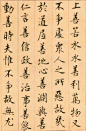 上善若水水善利萬物又
不爭處衆人之所惡故幾
於道居善地心善淵與善
仁言善信政善治事善能
動善時夫惟不爭故無尤